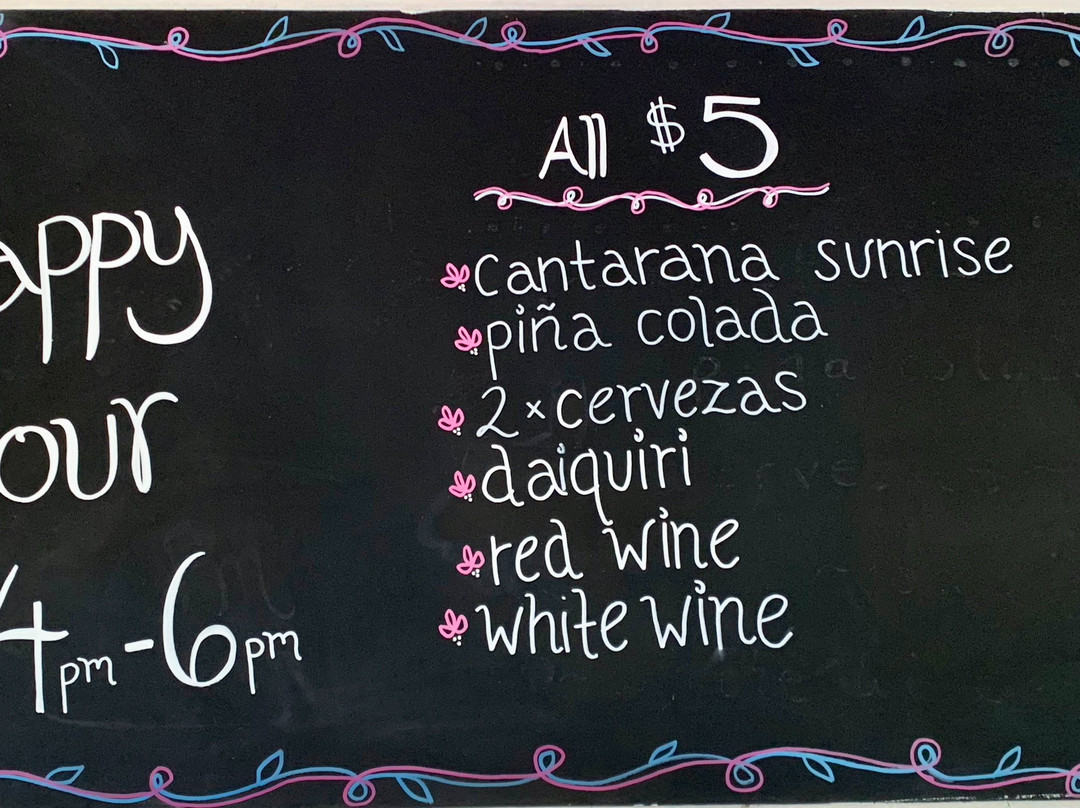 appy
our
4pm-6pm
All $5
cantarana sunrise
piña colada
2 x cervezas
daiquiri
red wine
white wine